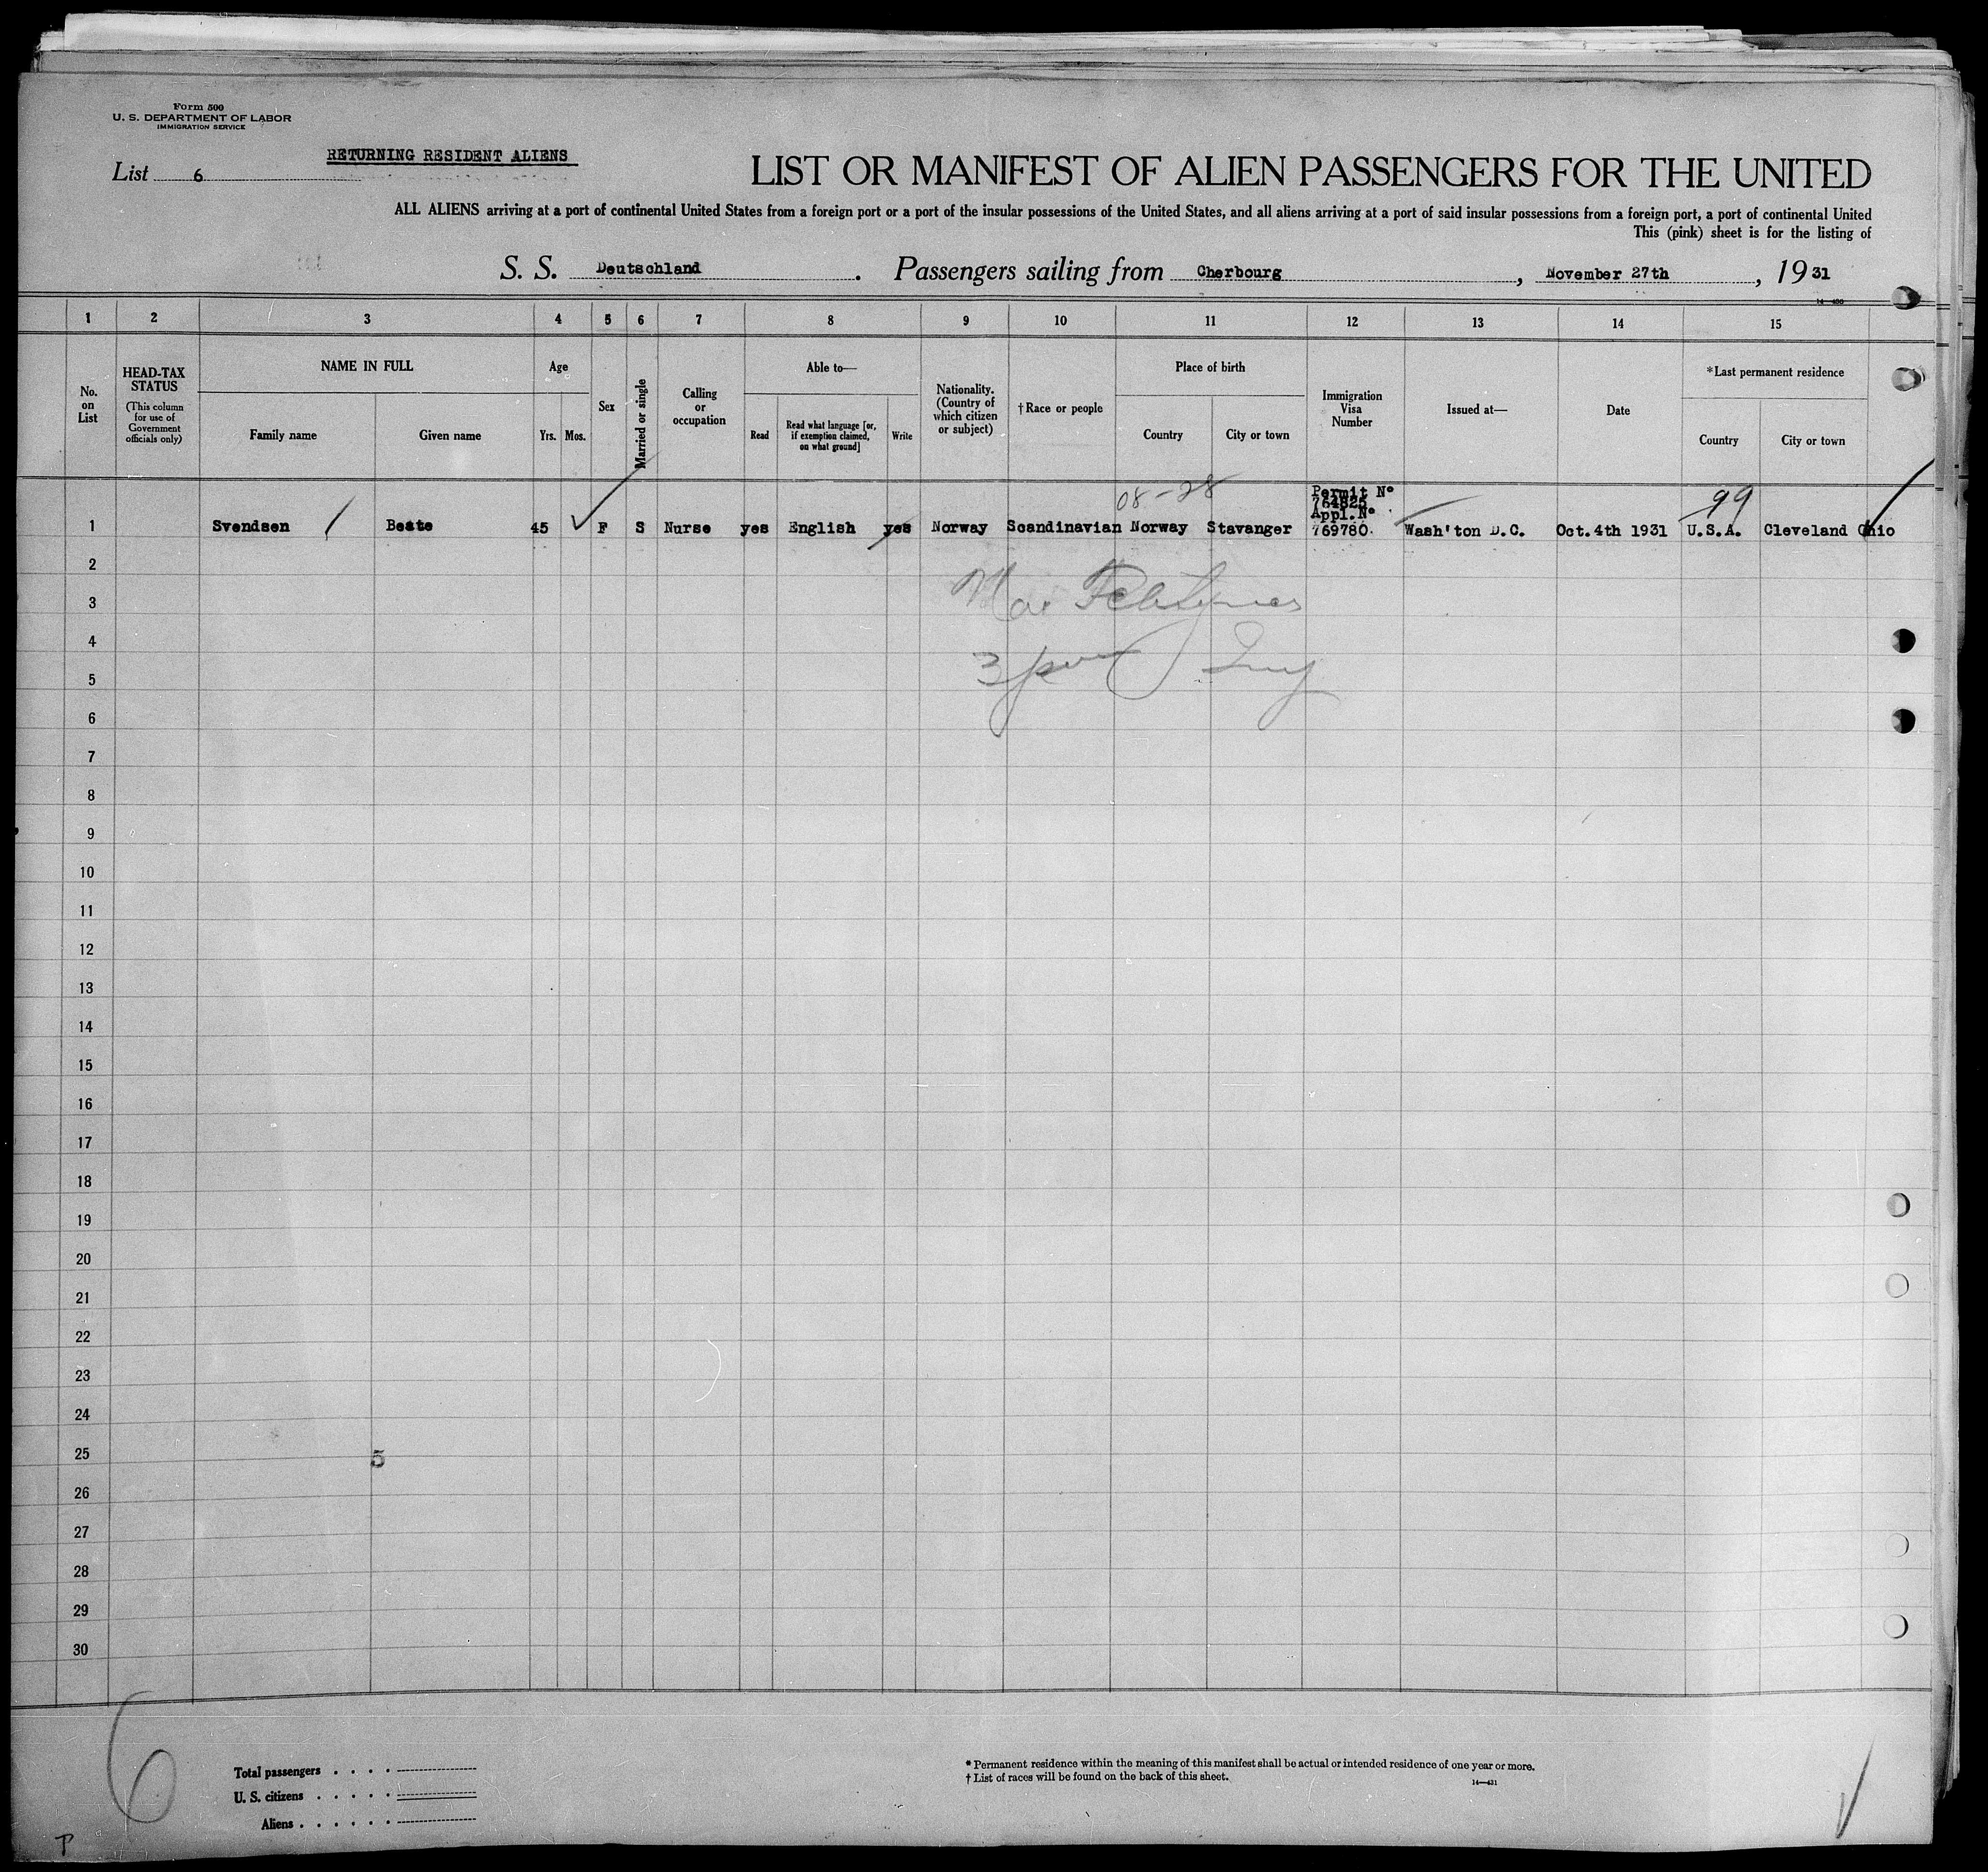 Form 500
U. S. DEPARTMENT OF LABOR
IMMIGRATION SERVICE
RETURNING RESIDENT ALIENS
List 6
LIST OR MANIFEST OF ALIEN PASSENGERS FOR THE UNITED
ALL ALIENS arriving at a port of continental United States from a foreign port or a port of the insular possessions of the United States, and all aliens arriving at a port of said insular possessions from a foreign port, a port of continental United
This (pink) sheet is for the listing of
S. S. Deutschland. Passengers sailing from Cherbourg, November 27th, 1931
14—430
1 2 3 4 5 6 7 8 9 10 11 12 13 14 15
No. on List
HEAD-TAX STATUS
(This column for use of Government officials only)
NAME IN FULL
Family name Given name
Age
Yrs. Mos.
Sex
Married or single
Calling or occupation
Able to—
Read
Read what language [or, if exemption claimed, on what ground]
Write
Nationality. (Country of which citizen or subject)
†Race or people
Place of birth
Country City or town
Immigration Visa Number
Issued at—
Date
*Last permanent residence
Country City or town
08-28
Permit Nº
764825
Appl.Nº
99
1 Svendsen Beate 45 F S Nurse yes English yes Norway Scandinavian Norway Stavanger 769780. Wash'ton D.C. Oct.4th 1931 U.S.A. Cleveland Ohio
2
3
4
5
6
7
8
9
10
11
12
13
14
15
16
17
18
19
20
21
22
23
24
25
5
26
27
28
29
30
6
Total passengers . . . .
U. S. citizens . . . . .
Aliens . . . . . .
* Permanent residence within the meaning of this manifest shall be actual or intended residence of one year or more.
† List of races will be found on the back of this sheet.
14—431
P